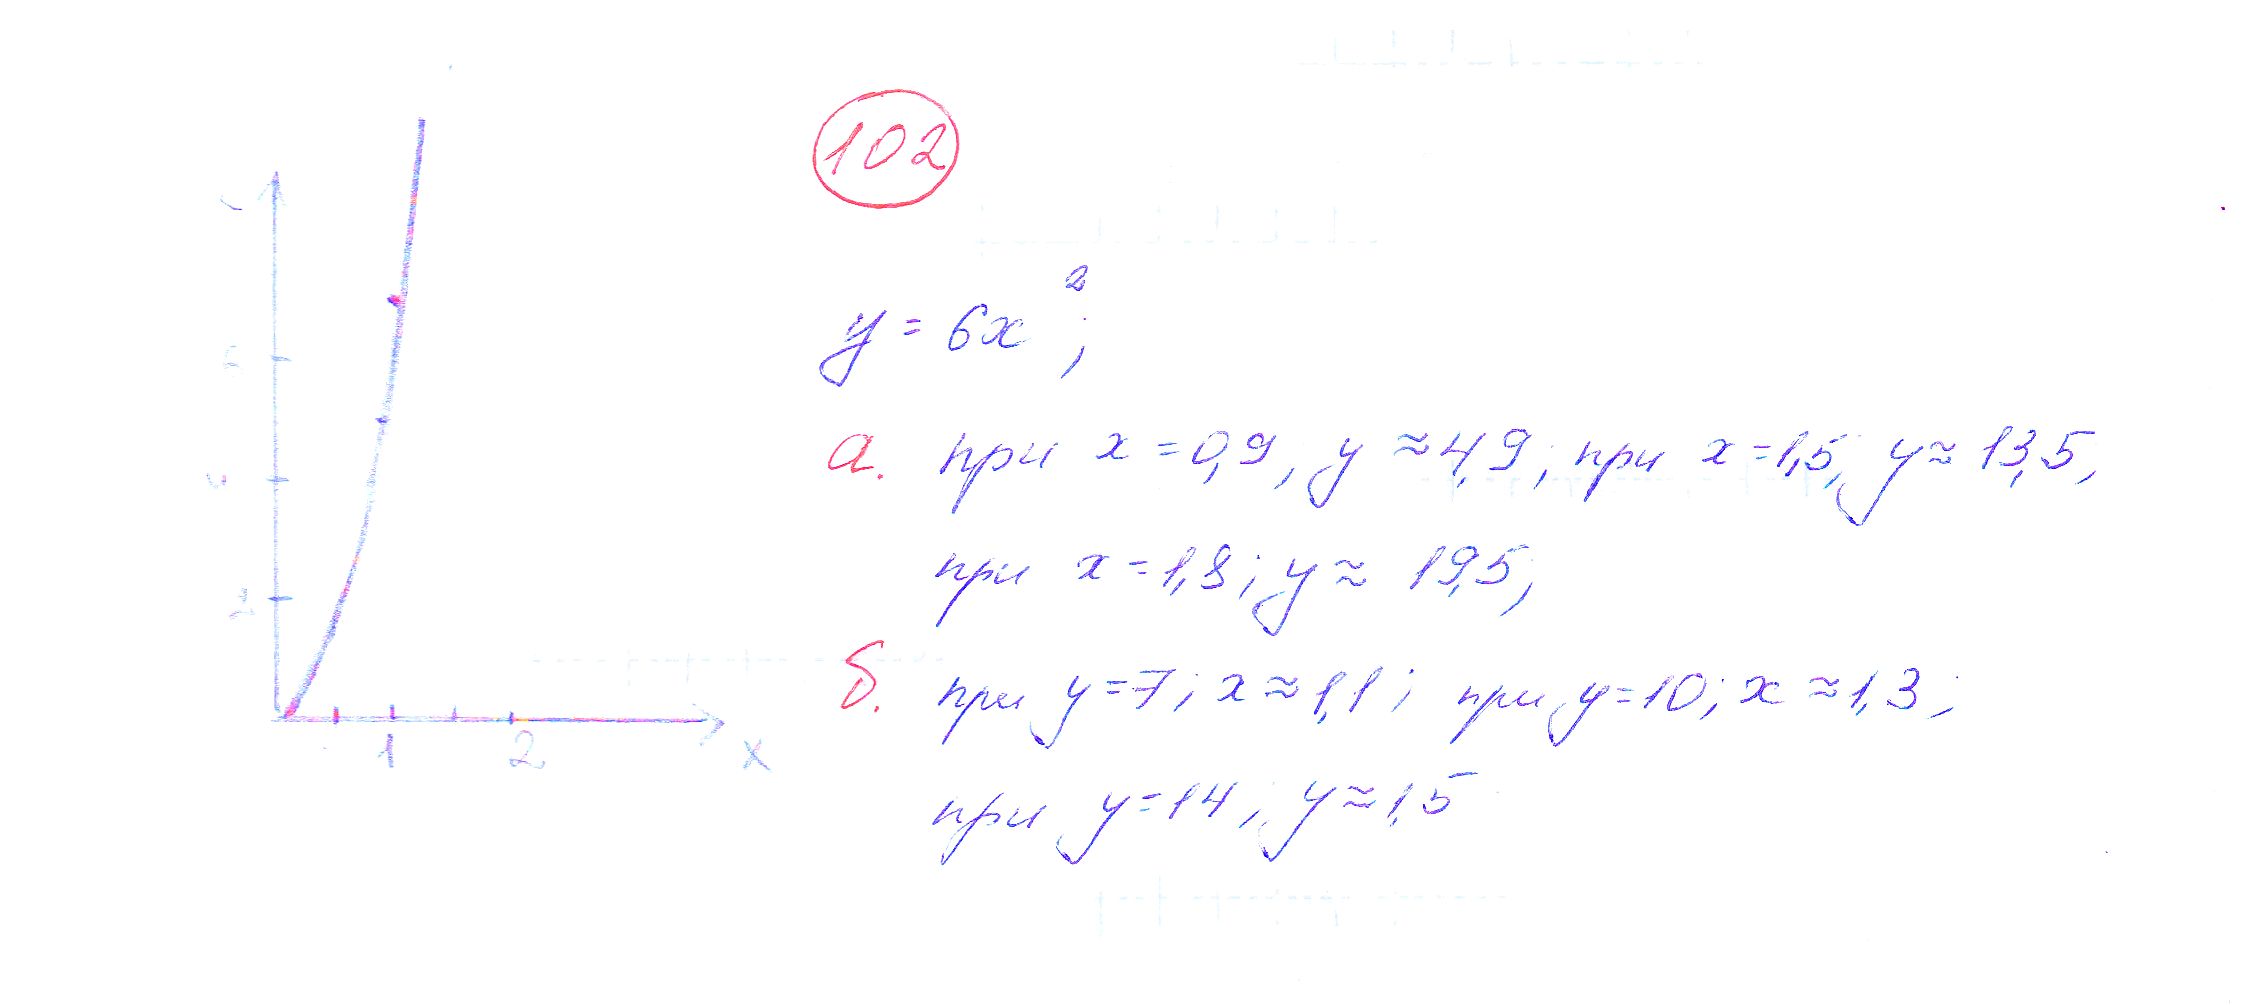 102
y = 6x²;
а. при x = 0,9, y ≈ 4,9; при x = 1,5; y ≈ 13,5,
при x = 1,8; y ≈ 19,5;
б. при y = 7; x ≈ 1,1; при y = 10; x ≈ 1,3;
при y = 14; y ≈ 1,5
1 2 x